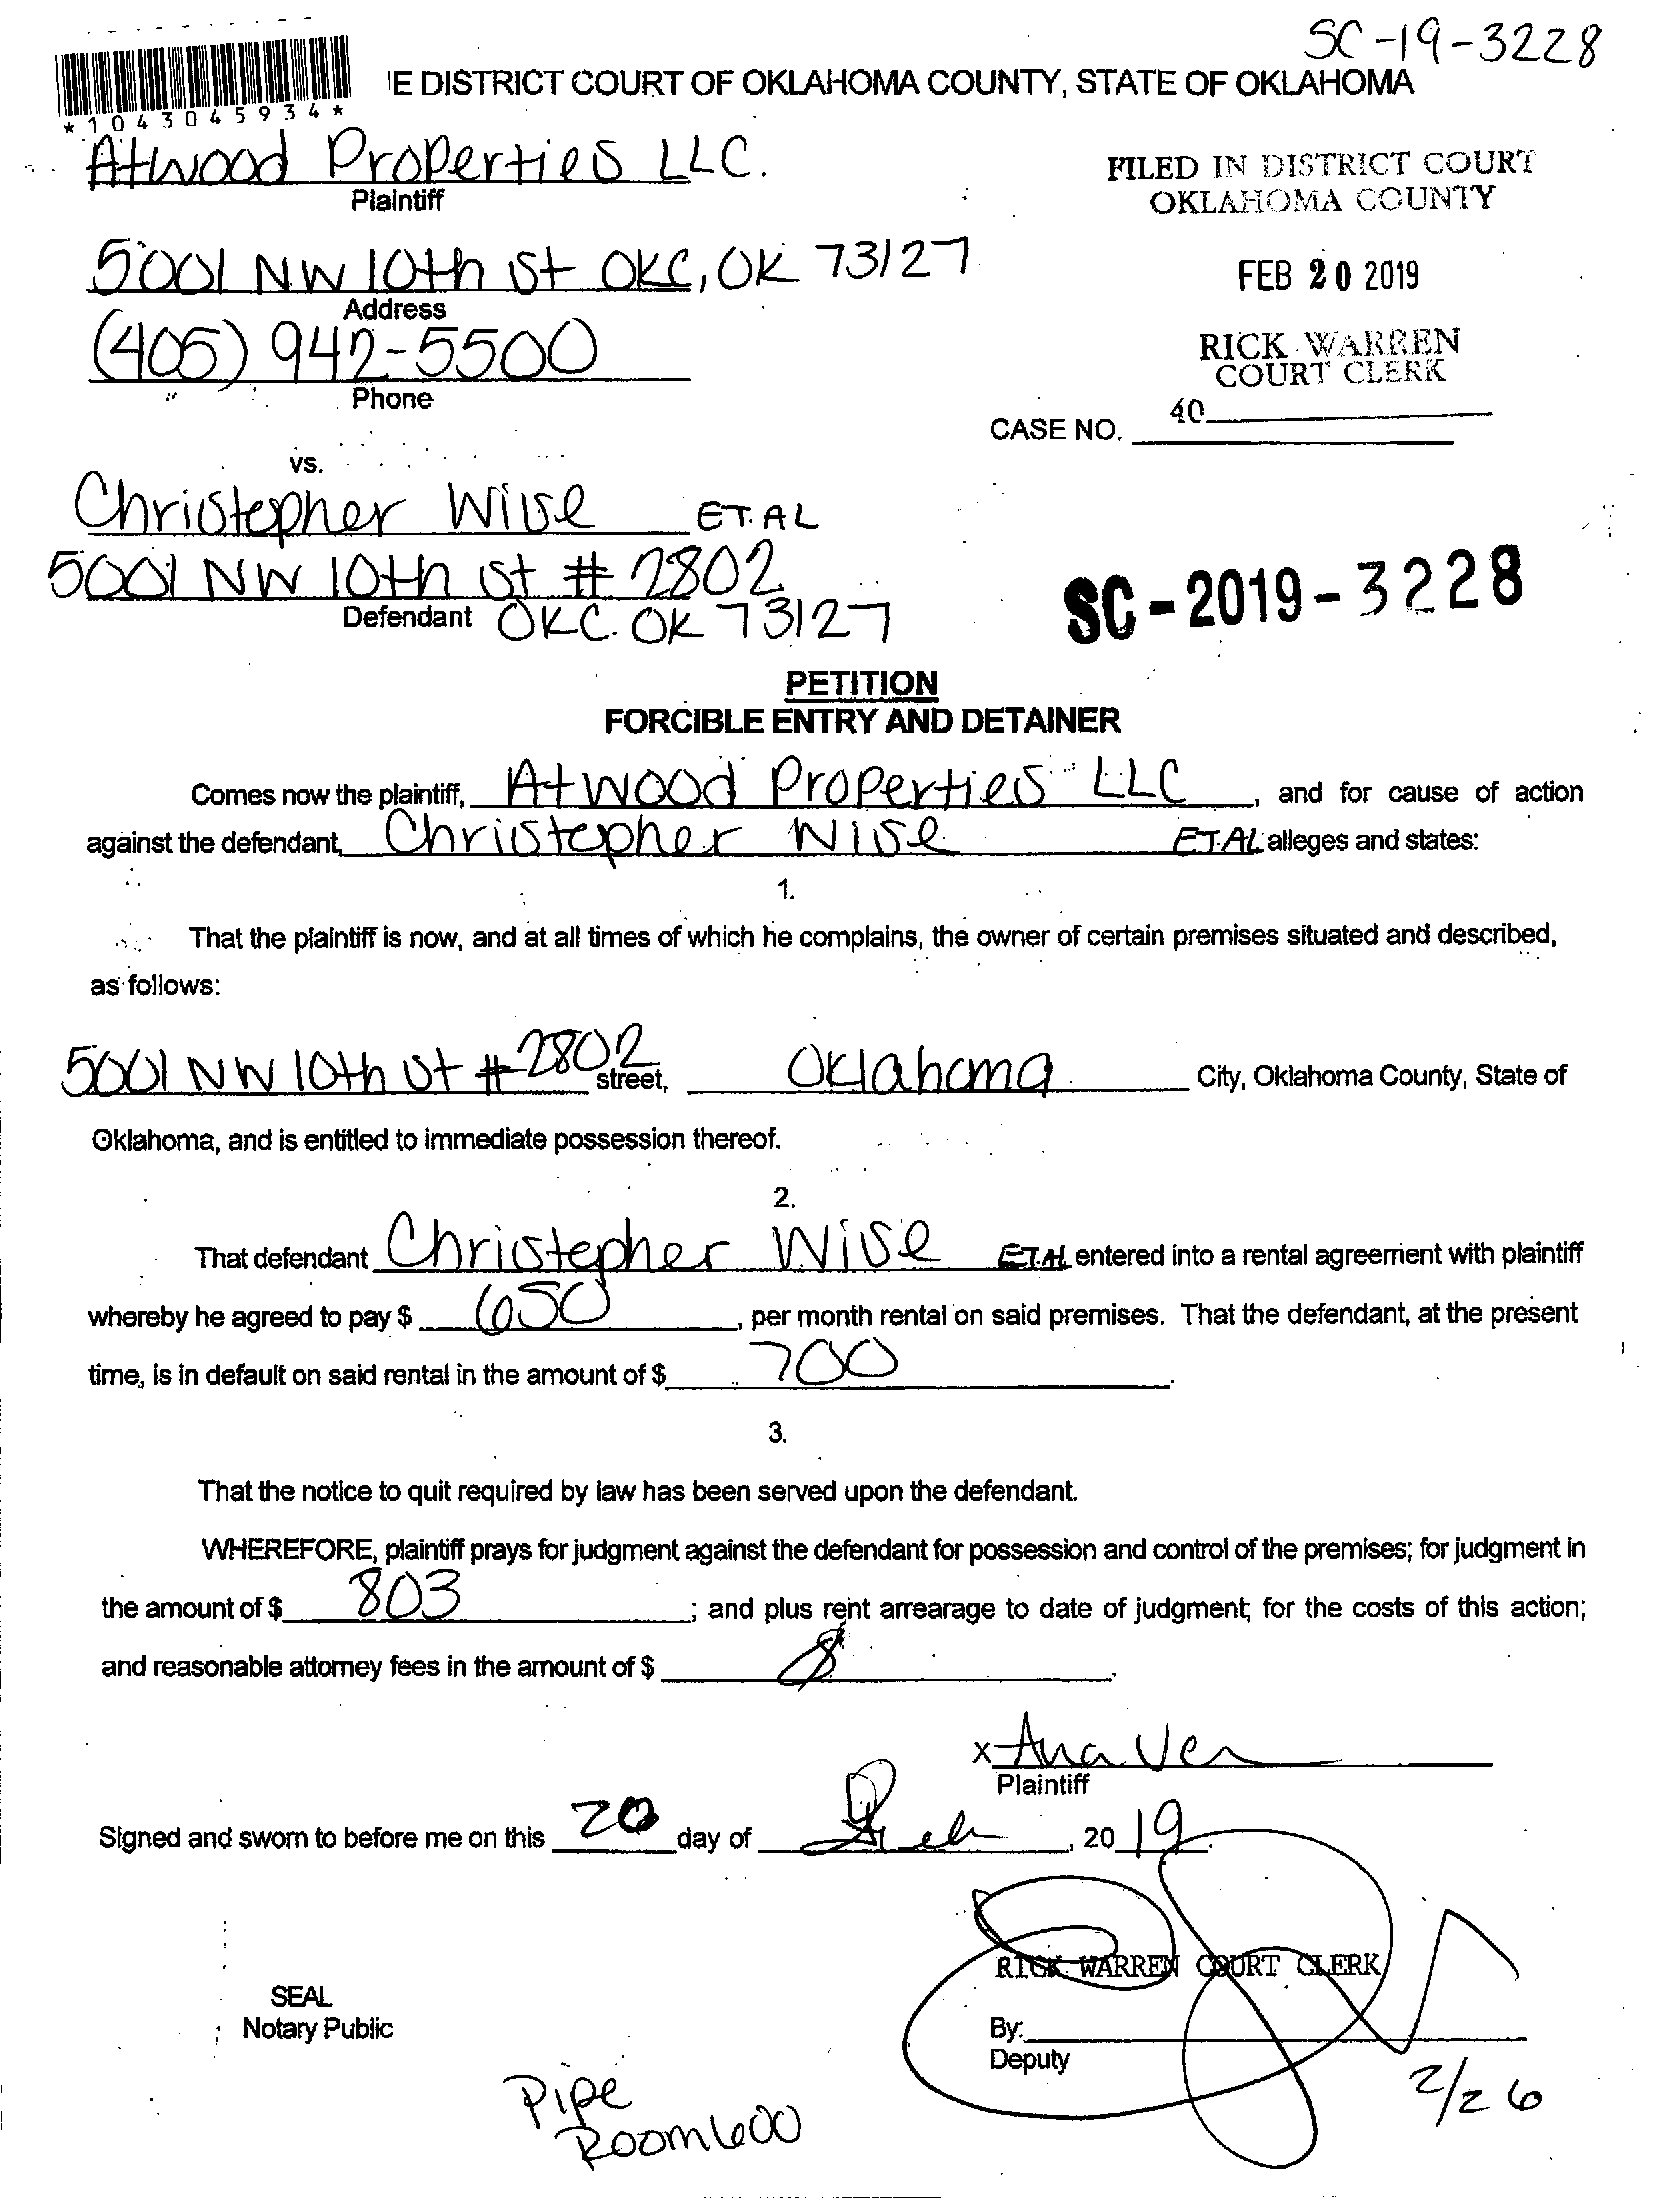 SC-19-3228
'E DISTRICT COURT OF OKLAHOMA COUNTY, STATE OF OKLAHOMA
*1043045934*
Atwood Properties LLC.
Plaintiff
FILED IN DISTRICT COURT
OKLAHOMA COUNTY
5001 NW 10th St OKC, OK 73127
Address
FEB 20 2019
(405) 942-5500
Phone
RICK WARREN
COURT CLERK
40
CASE NO.
vs.
Christepher Wise ET.AL
5001 NW 10th st # 2802
Defendant OKC. OK 73127
SC-2019-3228
PETITION
FORCIBLE ENTRY AND DETAINER
Comes now the plaintiff, Atwood Properties LLC, and for cause of action
against the defendant, Christepher Wise ET.AL alleges and states:
1.
That the plaintiff is now, and at all times of which he complains, the owner of certain premises situated and described,
as follows:
5001 NW 10th St # 2802 street, Oklahoma City, Oklahoma County, State of
Oklahoma, and is entitled to immediate possession thereof.
2.
That defendant Christepher Wise ET.AL entered into a rental agreement with plaintiff
whereby he agreed to pay $ 650, per month rental on said premises. That the defendant, at the present
time, is in default on said rental in the amount of $ 700.
3.
That the notice to quit required by law has been served upon the defendant.
WHEREFORE, plaintiff prays for judgment against the defendant for possession and control of the premises; for judgment in
the amount of $ 803; and plus rent arrearage to date of judgment; for the costs of this action;
and reasonable attorney fees in the amount of $ .
x Ana Ver
Plaintiff
Signed and sworn to before me on this 20 day of Feb, 2019.
RICK WARREN COURT CLERK
SEAL
Notary Public
By:
Deputy
2/26
Pipe
Room 600